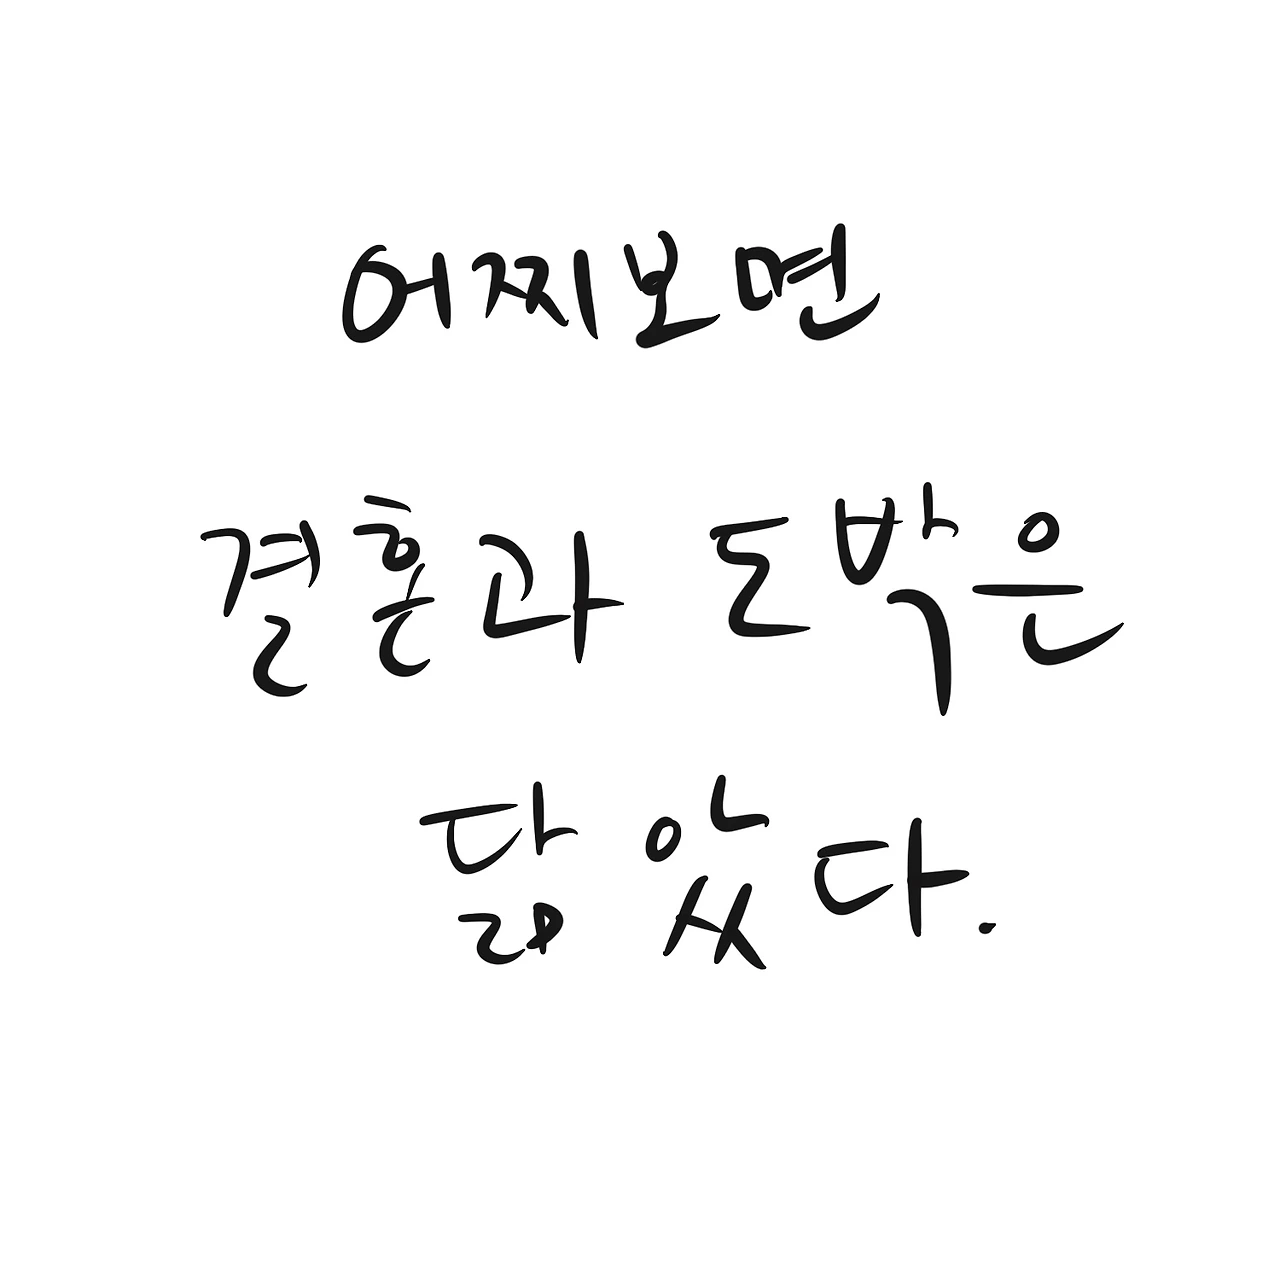 어찌보면
결혼과 도박은
닮았다.